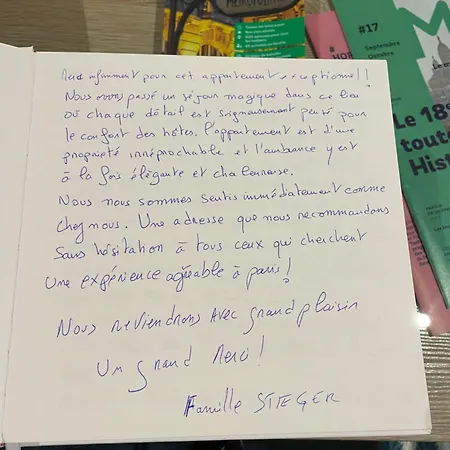 Merci infiniment pour cet appartement exceptionnel!
Nous avons passé un séjour magique dans ce lieu
où chaque détail est soigneusement pensé pour
le confort des hôtes. L'appartement est d'une
propriété irréprochable et l'ambiance y est
à la fois élégante et chaleureuse.
Nous nous sommes sentis immédiatement comme
chez nous. Une adresse que nous recommandons
sans hésitation à tous ceux qui cherchent
une expérience agréable à paris!
Nous reviendrons avec grand plaisir
Un grand Merci!
Famille STIEGER
#17
Septembre
Octobre
Le 18e
toute
Hist